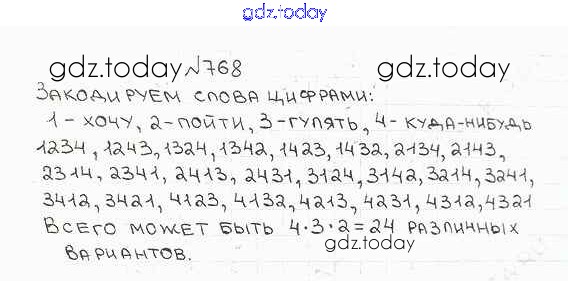 gdz.today
gdz.today №768 gdz.today
Закодируем слова цифрами:
1 - хочу, 2 - пойти, 3 - гулять, 4 - куда-нибудь
1234, 1243, 1324, 1342, 1423, 1432, 2134, 2143,
2314, 2341, 2413, 2431, 3124, 3142, 3214, 3241,
3412, 3421, 4123, 4132, 4213, 4231, 4312, 4321
Всего может быть 4·3·2=24 различных
gdz.today
вариантов.